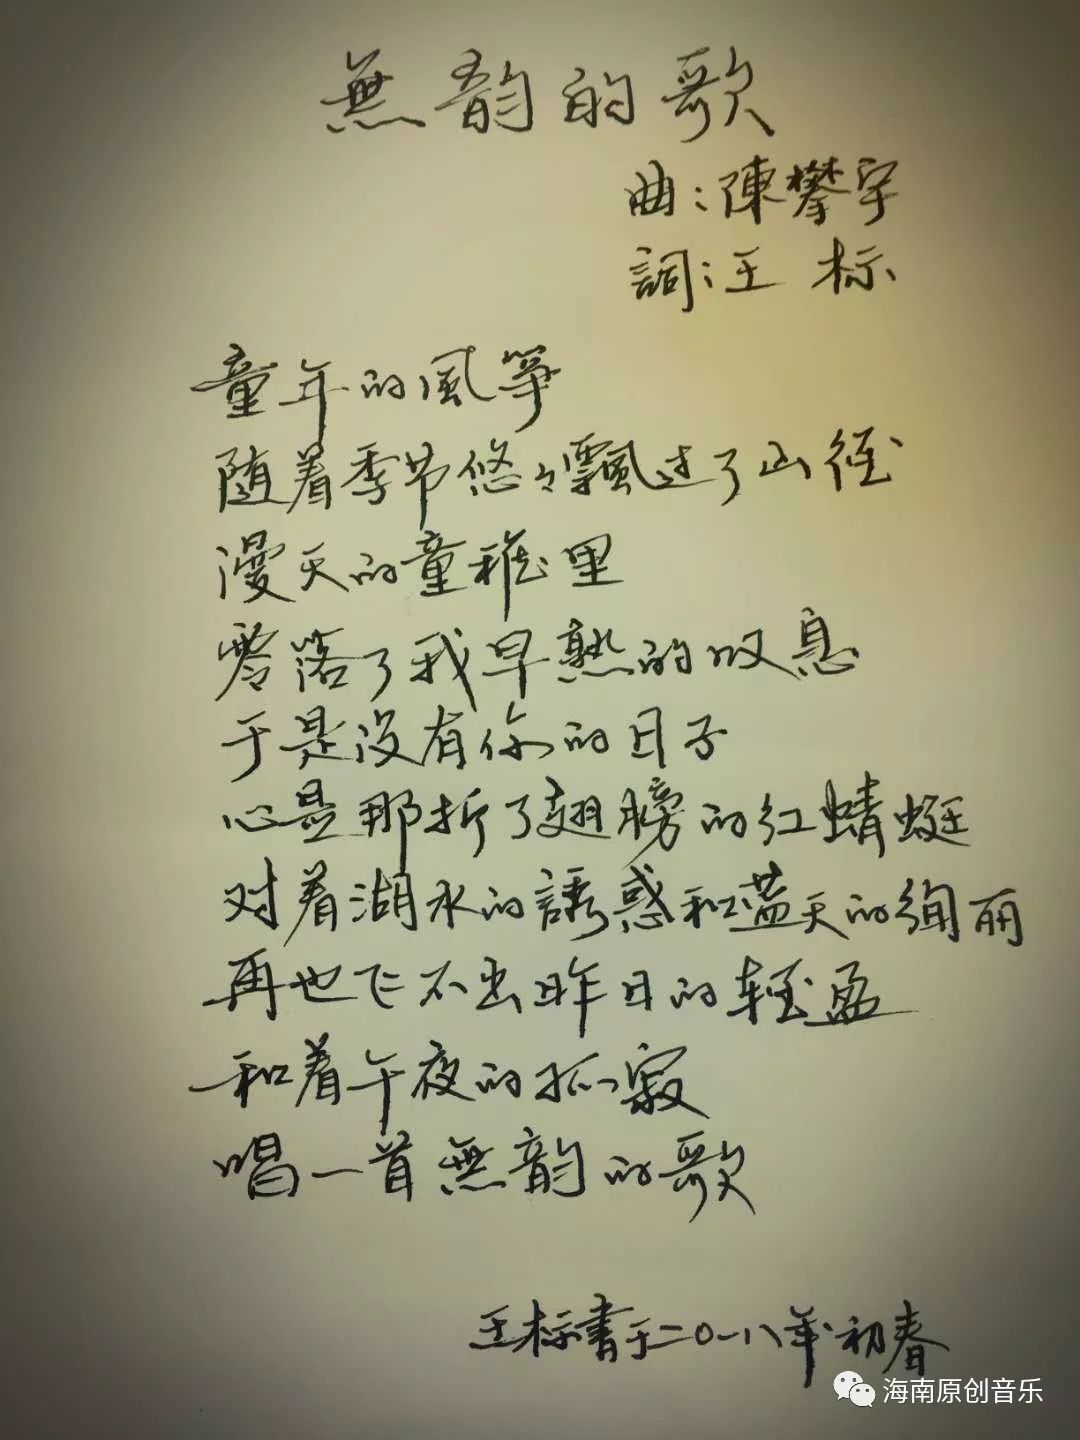 無韵的歌
曲：陳攀宇
詞：王 标
童年的風箏
随着季节悠々飄过了山径
漫天的童稚里
零落了我早熟的叹息
于是没有你的日子
心是那折了翅膀的红蜻蜓
对着湖水的誘惑和蓝天的绚丽
再也飞不出昨日的轻盈
和着午夜的孤寂
唱一首無韵的歌
王标書于二〇一八年初春
海南原创音乐